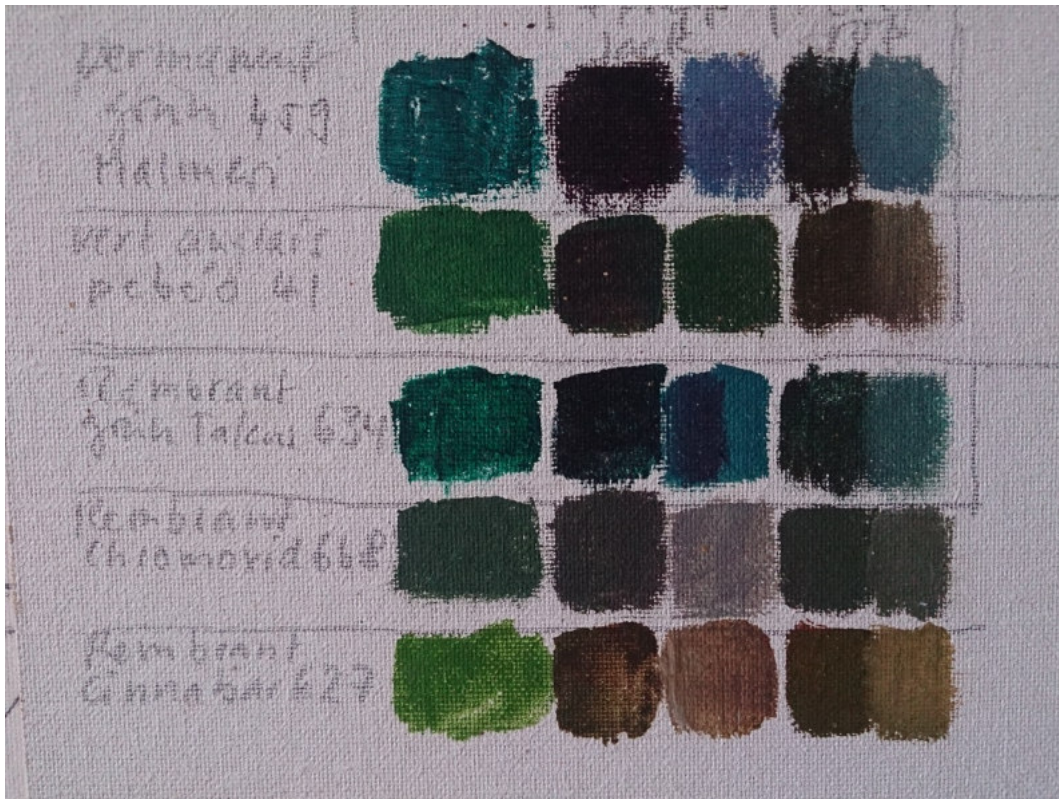 lack rot
permanent
grün 459
Malmeri
vert anglais
pebéo 41
Rembrant
grün Talens 634
Rembrant
Chromoxid 668
Rembrant
Cinnabar 627